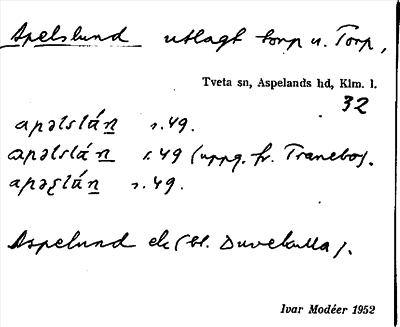 Apelslund utlagt torp u. Torp,
Tveta sn, Aspelands hd, Klm. l.
32
apəlslán s.49.
apəlslán s.49 (uppg. fr. Tranebo).
apəʂlán s.49.
Aspelund ek (bl. Duvekulla).
Ivar Modéer 1952